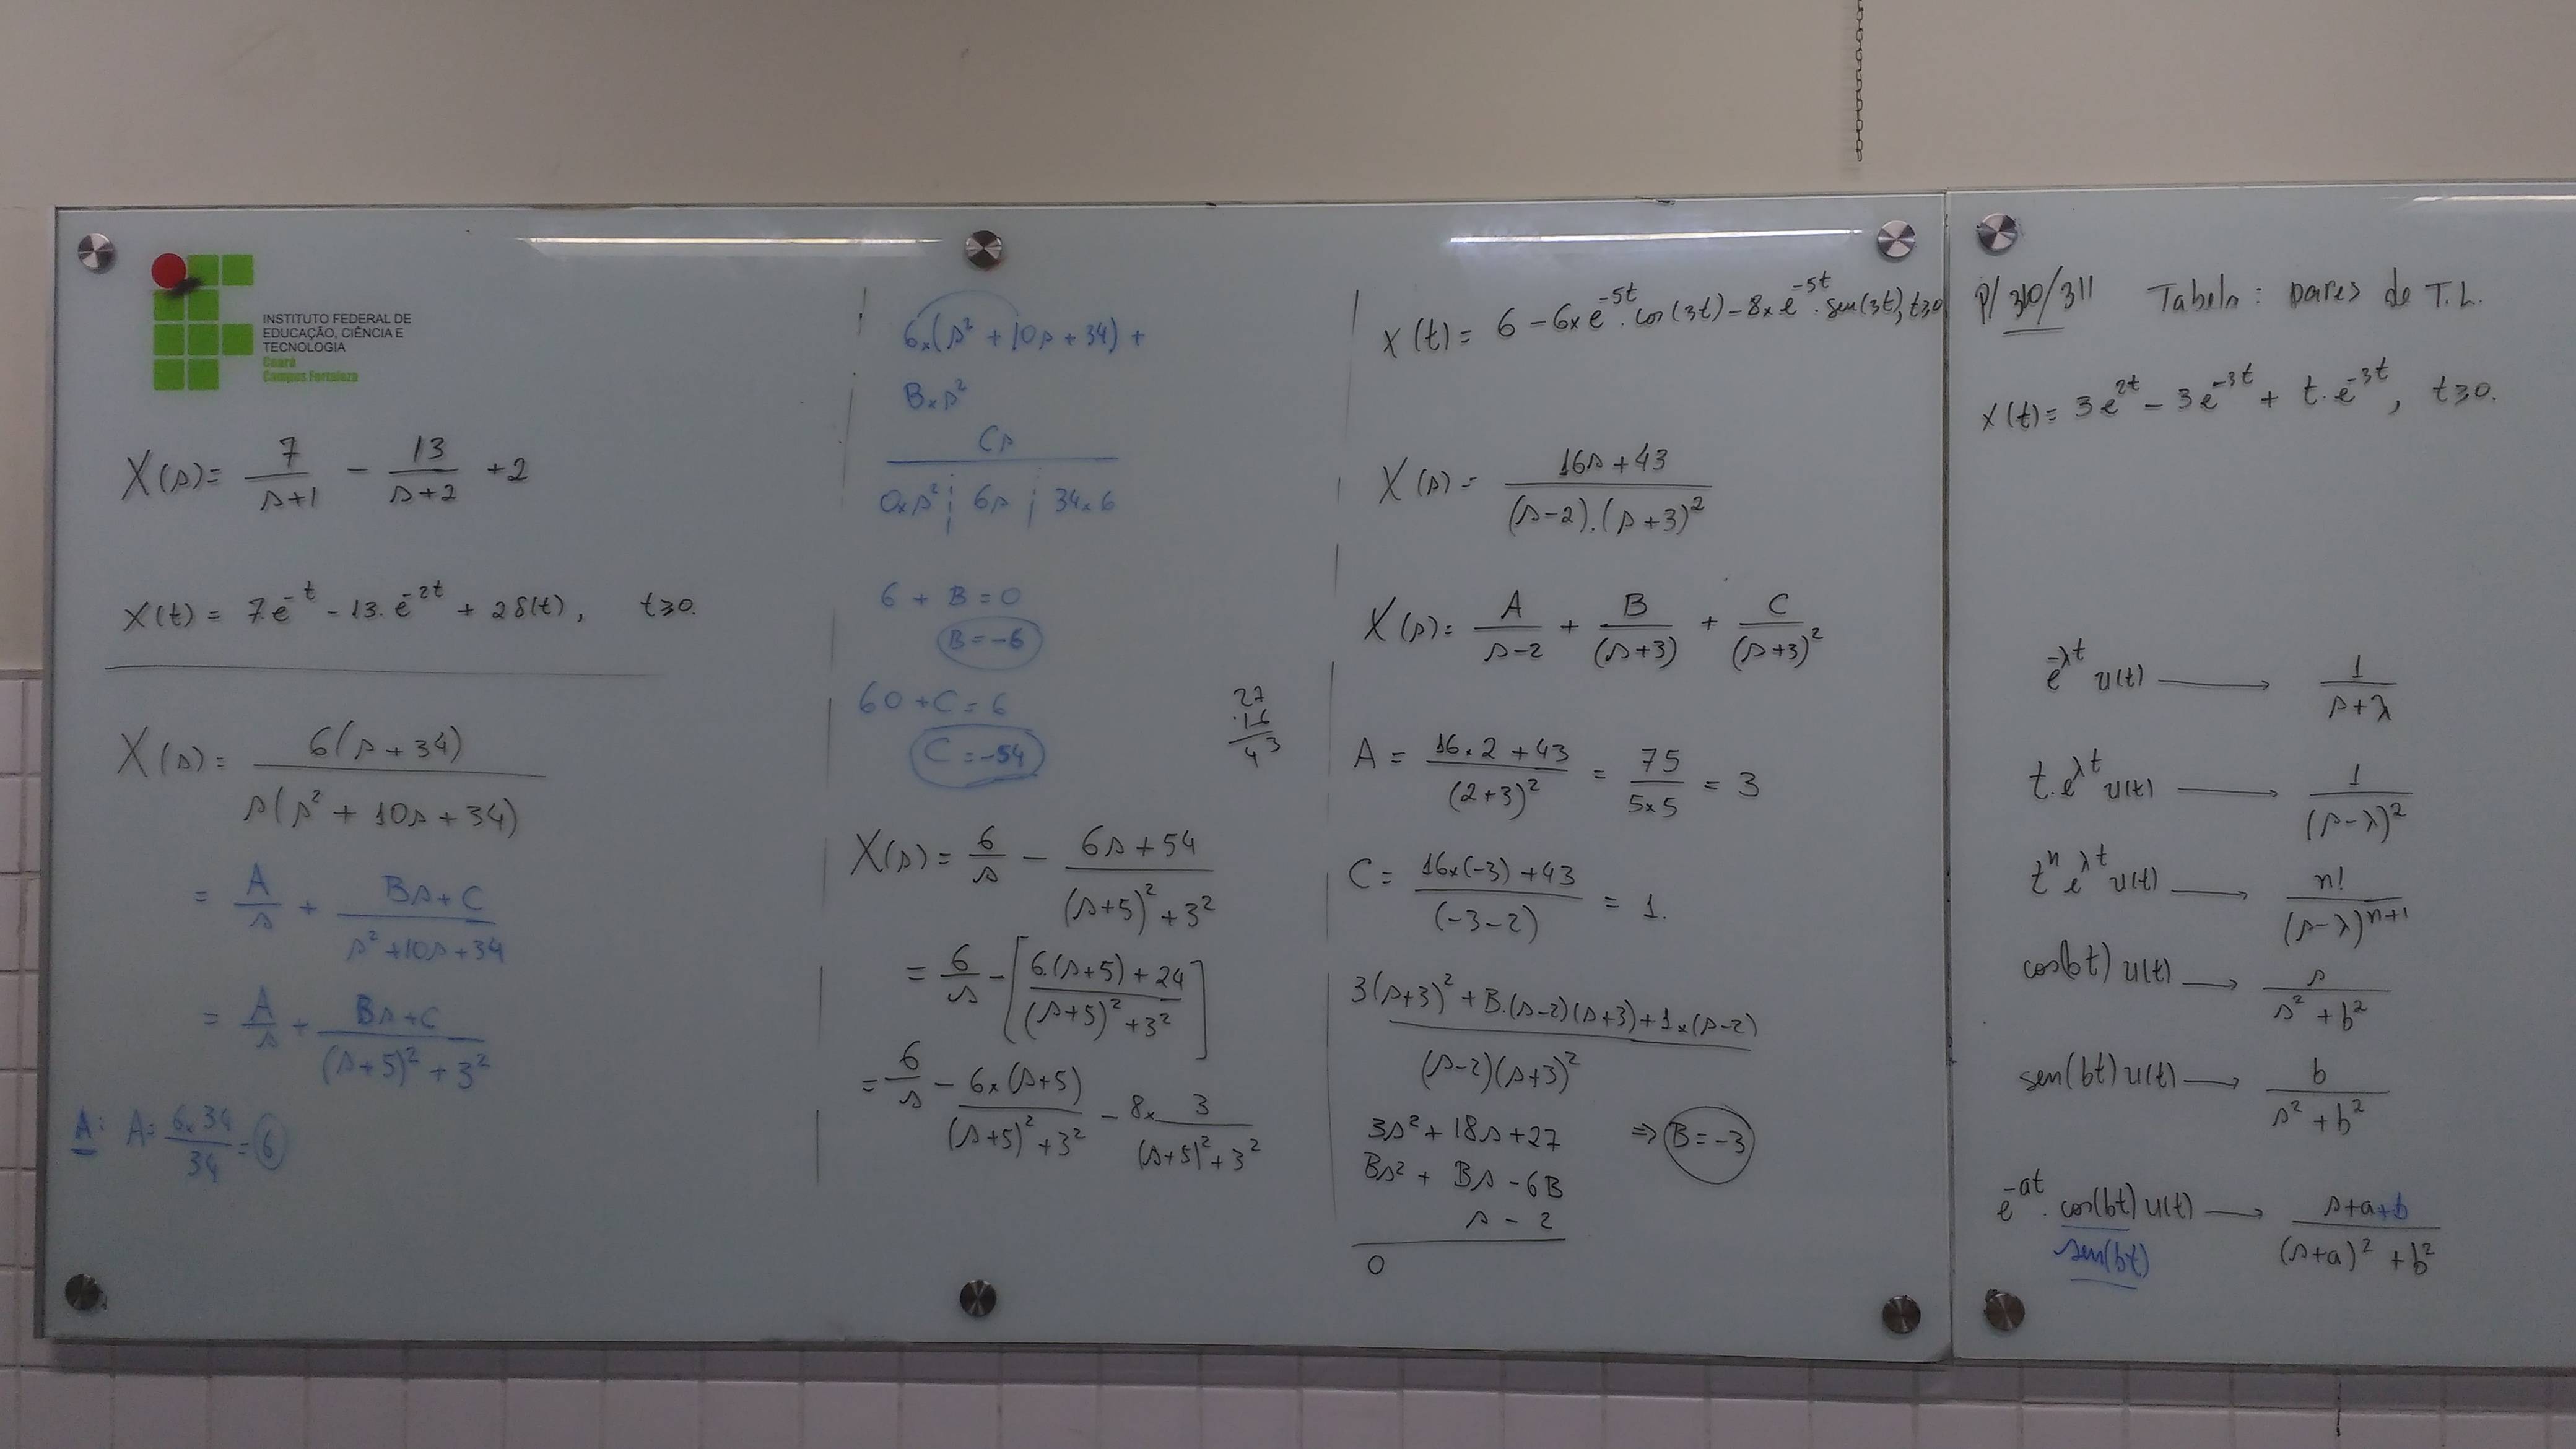 INSTITUTO FEDERAL DE
EDUCAÇÃO, CIÊNCIA E
TECNOLOGIA
Ceará
Campus Fortaleza
X(s) = 7/(s+1) - 13/(s+2) + 2
x(t) = 7.e^-t - 13.e^-2t + 2δ(t), t≥0.
X(s) = 6(s+34) / s(s² + 10s + 34)
= A/s + (Bs+C)/(s²+10s+34)
= A/s + (Bs+C)/((s+5)² + 3²)
A: A = 6.34/34 = 6
6×(s² + 10s + 34) +
B×s²
Cs
0×s² ¦ 6s ¦ 34×6
6 + B = 0
B = -6
60 + C = 6
C = -54
27
16
43
X(s) = 6/s - (6s+54)/((s+5)² + 3²)
= 6/s - [(6.(s+5) + 24)/((s+5)² + 3²)]
= 6/s - 6×(s+5)/((s+5)² + 3²) - 8× 3/((s+5)² + 3²)
x(t) = 6 - 6×e^-5t . cos(3t) - 8×e^-5t . sen(3t), t≥0
X(s) = (16s+43)/((s-2).(s+3)²)
X(s) = A/(s-2) + B/(s+3) + C/(s+3)²
A = (16.2+43)/(2+3)² = 75/(5×5) = 3
C = (16×(-3)+43)/(-3-2) = 1.
3(s+3)² + B.(s-2)(s+3) + 1×(s-2)
(s-2)(s+3)²
3s² + 18s + 27 ⇒ B = -3
Bs² + Bs - 6B
s - 2
0
p/ 310/311 Tabela: pares de T.L.
x(t) = 3e^2t - 3e^-3t + t.e^-3t, t≥0.
e^-λt u(t) → 1/(s+λ)
t.e^λt u(t) → 1/(s-λ)²
t^n e^λt u(t) → n!/(s-λ)^(n+1)
cos(bt) u(t) → s/(s² + b²)
sen(bt) u(t) → b/(s² + b²)
e^-at . cos(bt) u(t) → (s+a+b)/((s+a)² + b²)
sen(bt)